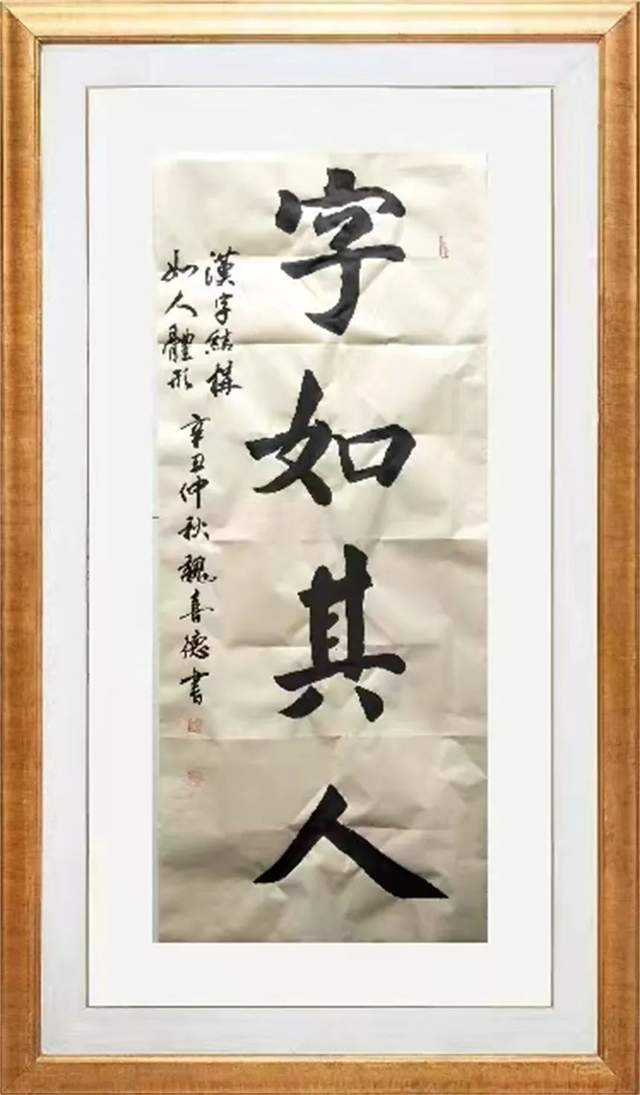 字如其人
漢字結構
如人體形
辛丑仲秋魏喜德書